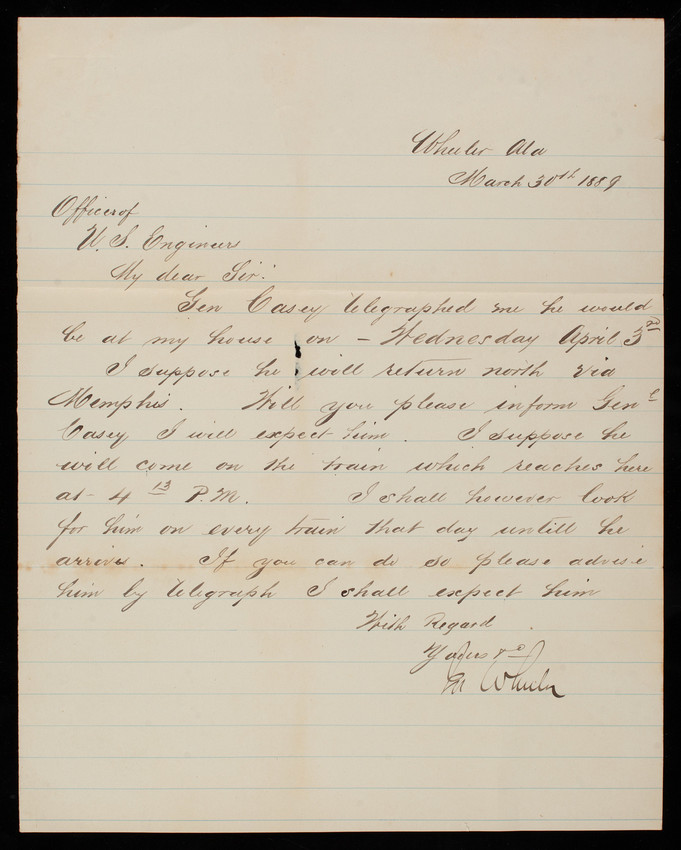 Wheeler Ala
March 30th 1889
Officer of
U. S. Engineers
My dear Sir:
Gen Casey telegraphed me he would
be at my house on - Wednesday April 3rd
I suppose he will return north via
Memphis. Will you please inform Genl
Casey I will expect him. I suppose he
will come on the train which reaches here
at 4 13 P.M. I shall however look
for him on every train that day untill he
arrives. If you can do so please advise
him by telegraph I shall expect him
With Regard
Yours &c
Wheeler